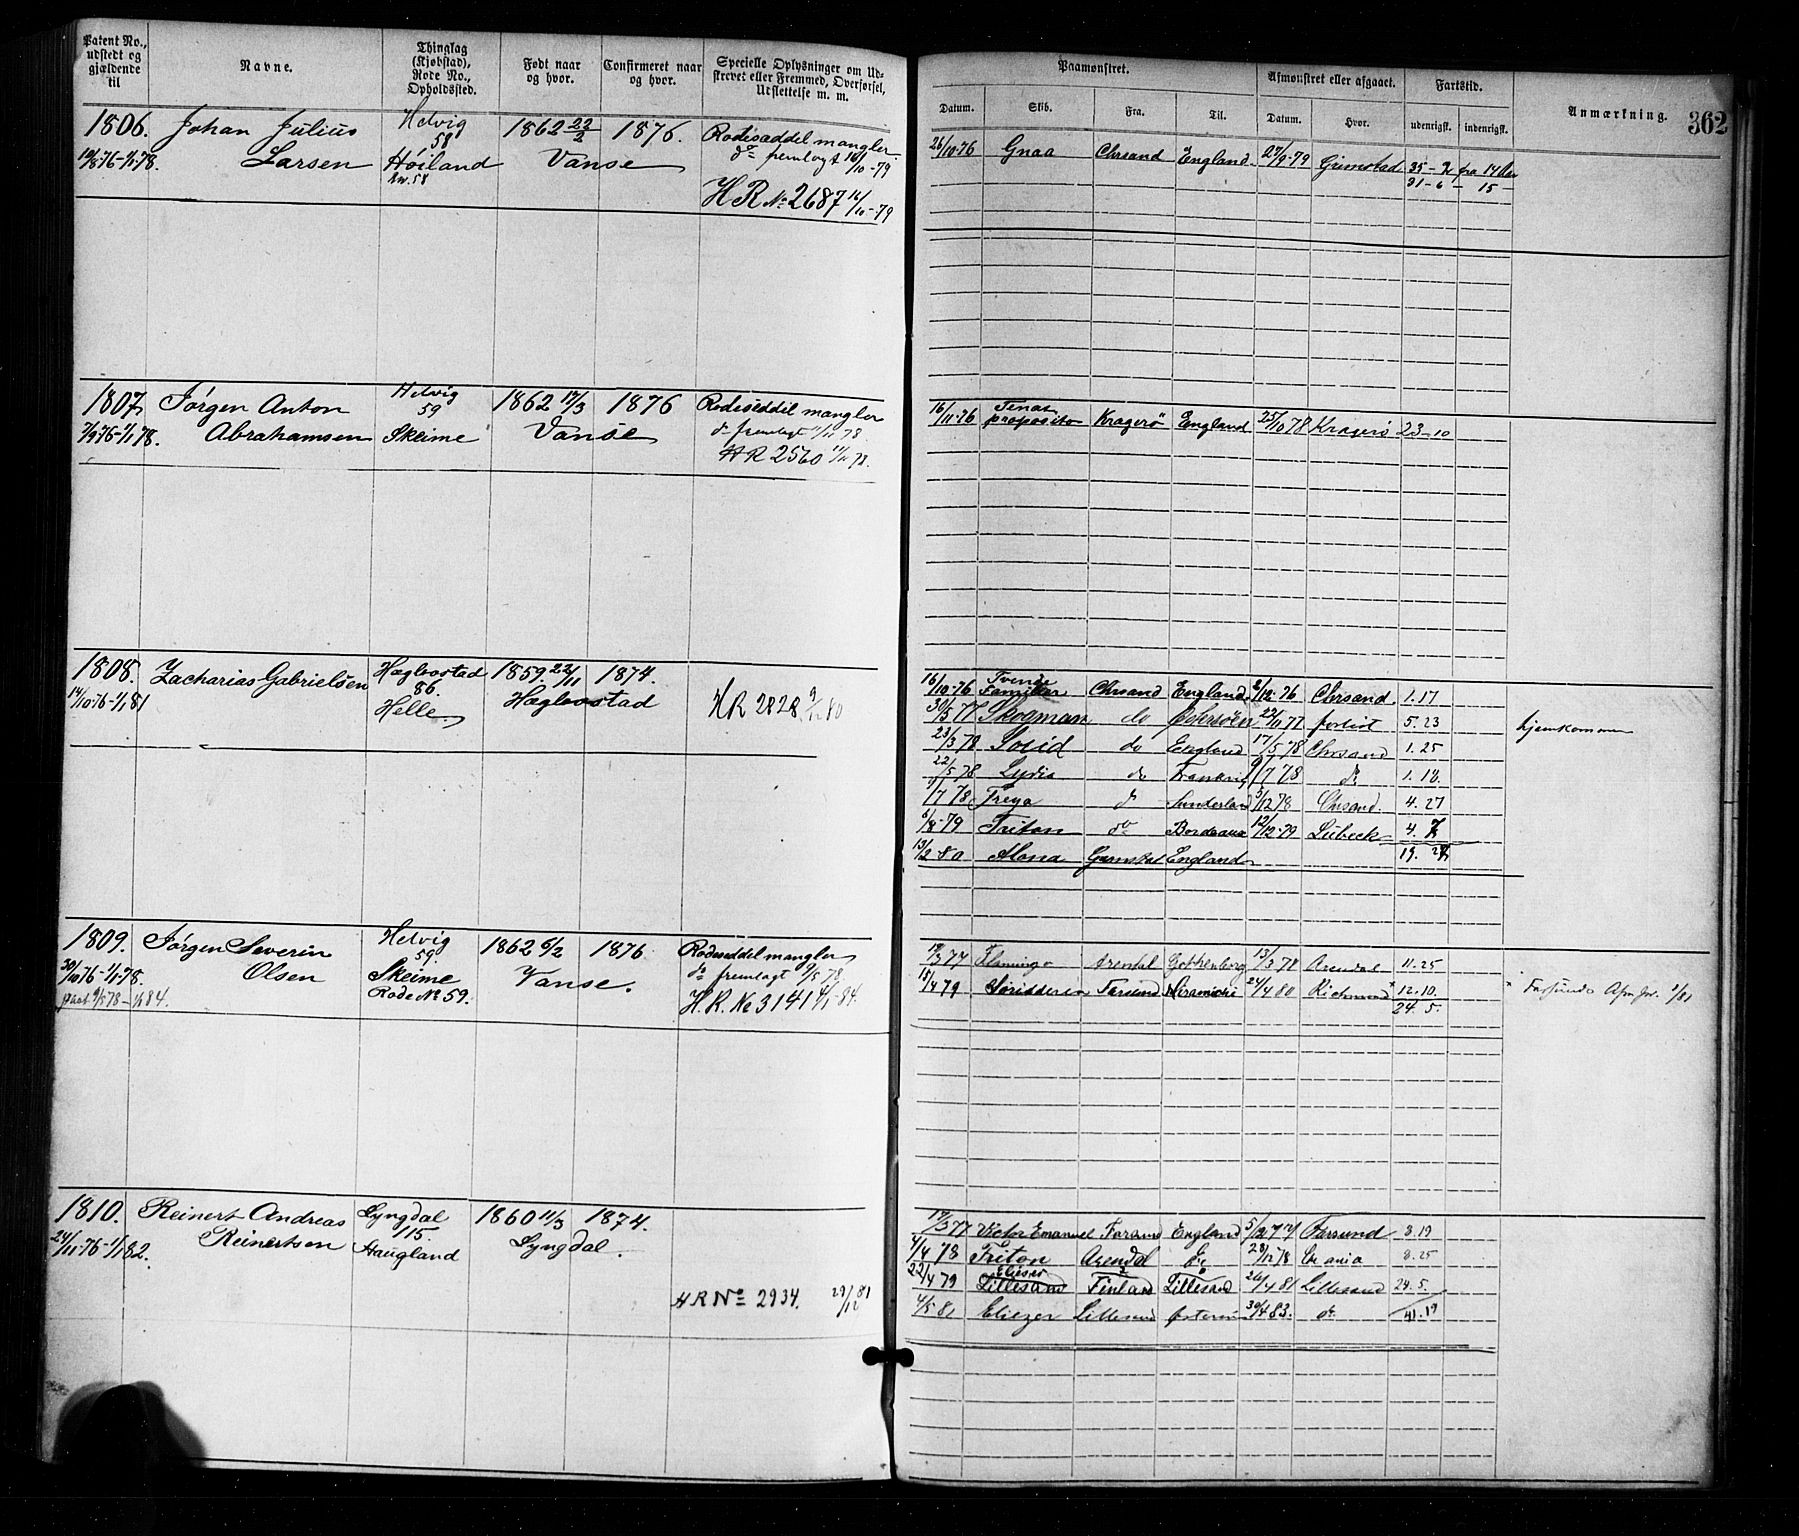 Patent No., udstedt og gjældende til
Navne.
Thinglag (Kjøbstad), Rode No., Opholdssted.
Født naar og hvor.
Confirmeret naar og hvor.
Specielle Oplysninger om Udskrevet eller Fremmed, Overførsel, Udslettelse m. m.
Paamønstret.
Datum.
Skib.
Fra.
Til.
Afmønstret eller afgaaet.
Datum.
Hvor.
Fartstid.
udenrigsk.
indenrigsk.
Anmærkning.
362
1806. Johan Julius Helvig 1862 22/2 1876. Rodeseddel mangler.
58
Larsen Høiland Vanse do fremlagt 16/10-79
HR No 2687 16/10-79
26/10-76 Gnaa Chrsand England 27/9-79 Grimstad 35-2 fra 14 Aar
31-6-15
1807 Jørgen Anton Helvig 1862 17/3 1876 Rodeseddel mangler
59
7/9 76-1/1-78. Abrahamsen Skeime Vanse do fremlagt
HR 2560
16/11-76 proposito Kragerø England 25/10 78 Kragerø 23-10
1808. Zacharias Gabrielsen Hægbostad 1859. 22/11 1874.
86.
14/10 76-1/1 81 Helle Hægbostad HR 2828 80
16/10-76 Tvende Familier Chrsand England 12-76 Chrsand 1.17
30/5 77 Skogman do 22/11 77 forlist 5.23 hjemkommen
23/3 78 Solid do England 17/5 78 Chrsand 1.25
22/5 78 Lydia do 7 78 do 1.18.
7 78 Freya do Sunderland 5/12 78 Chrsand. 4.27
8-79 Triton do Bordeaux 12/12-79 Lübeck 4.
13/2-80 England 19.
1809. Jørgen Severin Helvig 1862 6/2 1876. Rodeseddel mangler
59.
30/10 76-1/1-78. Olsen Skeime Vanse. do fremlagt 9/5 78
Rode No 59. H. R. No 3141 84.
3 77 Flamingo Arendal Gothenborg 13/3 78 Arendal 11.25
4 79 Farsund 24/4 80 Richmond 12.10.
24.5.
1810. Reinert Andreas Lyngdal 1860 11/3 1874.
115.
24/11-76-1/1 82. Reinertsen Haugland Lyngdal.
HR No 2934. 29/12 81
3 77 Victor Emanuel Farsund England Farsund 8.19
4 78 Triton Arendal 12 78 8.25
22/4 79 Elieser Lillesand Finland Lillesand 4 81 Lillesand 24.5.
4/5 81 Eliezer Lillesand 30/4 83. do 41.19